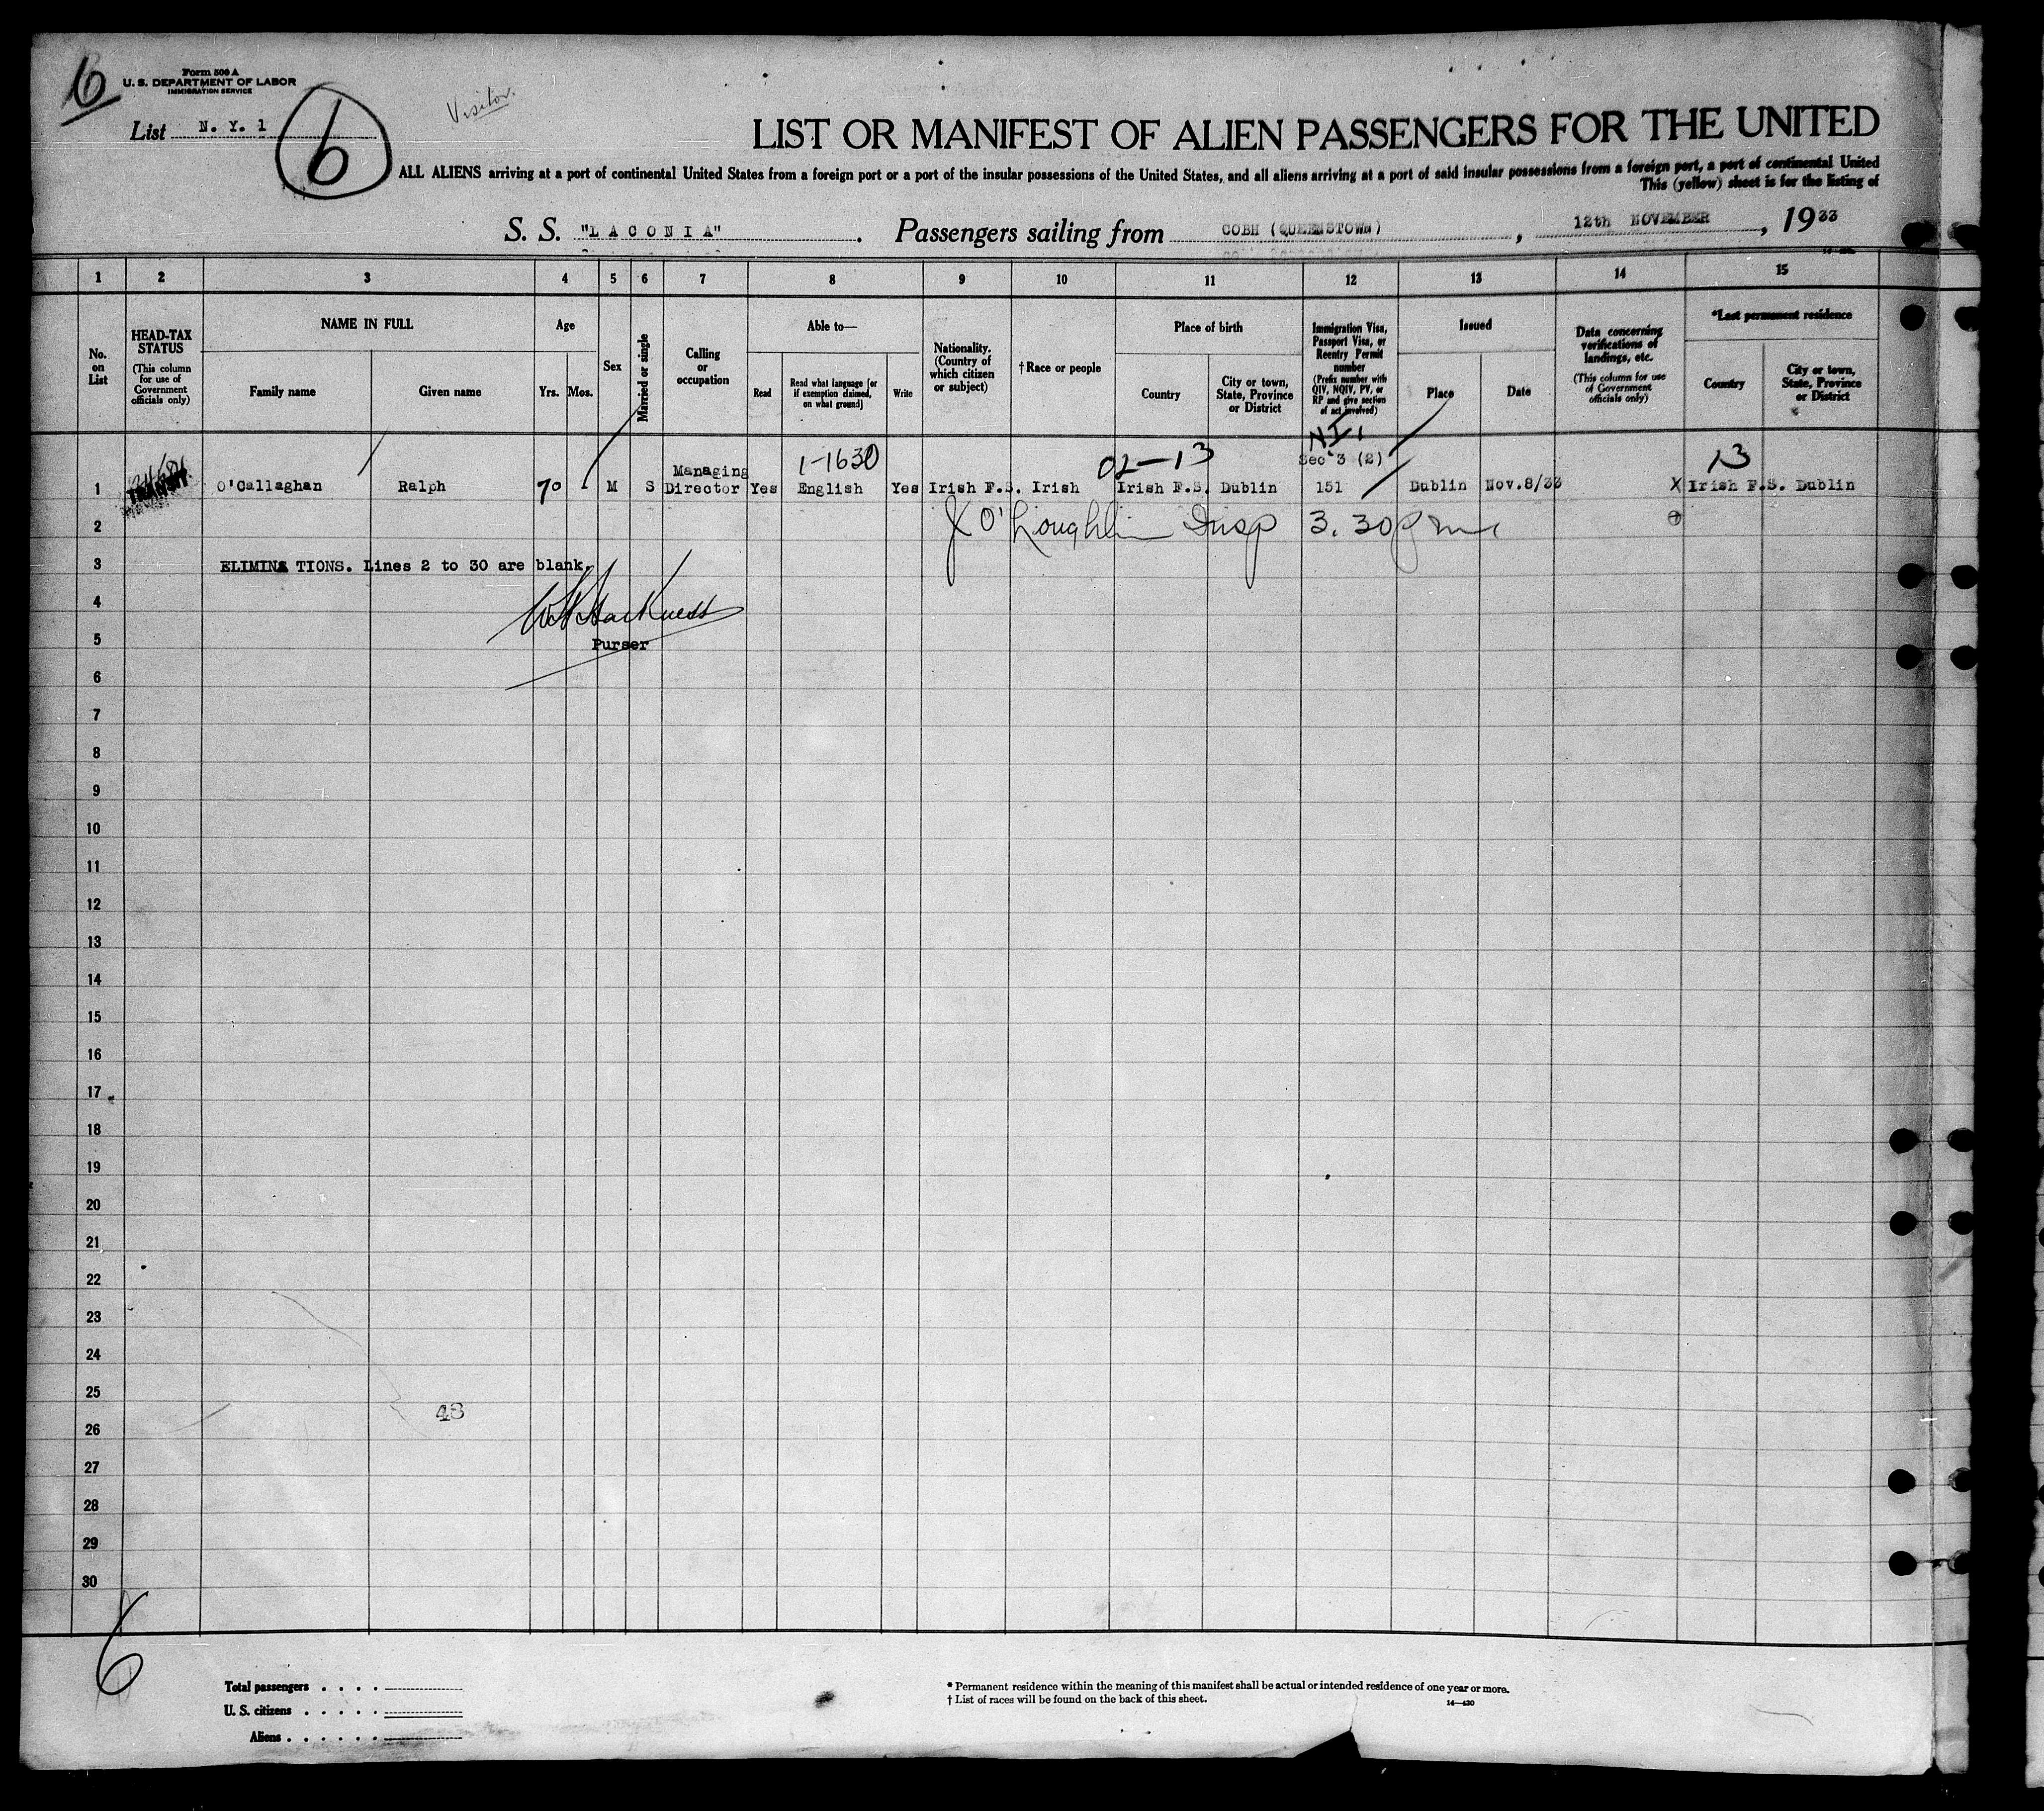 6
Form 500 A
U. S. DEPARTMENT OF LABOR
IMMIGRATION SERVICE
List N. Y. 1
6
Visitor.
LIST OR MANIFEST OF ALIEN PASSENGERS FOR THE UNITED
ALL ALIENS arriving at a port of continental United States from a foreign port or a port of the insular possessions of the United States, and all aliens arriving at a port of said insular possessions from a foreign port, a port of continental United
This (yellow) sheet is for the listing of
S. S. "LACONIA". Passengers sailing from COBH (QUEENSTOWN), 12th NOVEMBER, 1933
1 2 3 4 5 6 7 8 9 10 11 12 13 14 15
No. on List
HEAD-TAX STATUS
(This column for use of Government officials only)
NAME IN FULL
Family name
Given name
Age
Yrs. Mos.
Sex
Married or single
Calling or occupation
Able to—
Read
Read what language [or if exemption claimed, on what ground]
Write
Nationality. (Country of which citizen or subject)
†Race or people
Place of birth
Country
City or town, State, Province or District
Immigration Visa, Passport Visa, or Reentry Permit number
(Prefix number with QIV, NQIV, PV, or RP and give section of act involved)
Issued
Place
Date
Data concerning verifications of landings, etc.
(This column for use of Government officials only)
*Last permanent residence
Country
City or town, State, Province or District
N.I.
1-1630
02-13
Sec 3 (2)
13
1 TRANSIT O'Callaghan Ralph 70 M S Managing Director Yes English Yes Irish F.S. Irish Irish F.S. Dublin 151 Dublin Nov.8/33 X Irish F.S. Dublin
2 J O'Loughlin Insp 3.30 pm
3 ELIMINATIONS. Lines 2 to 30 are blank.
4
5 Purser
6
7
8
9
10
11
12
13
14
15
16
17
18
19
20
21
22
23
24
25
48
26
27
28
29
30
6
Total passengers . . . .
U. S. citizens . . . . .
Aliens . . . . . .
* Permanent residence within the meaning of this manifest shall be actual or intended residence of one year or more.
† List of races will be found on the back of this sheet.
14—430